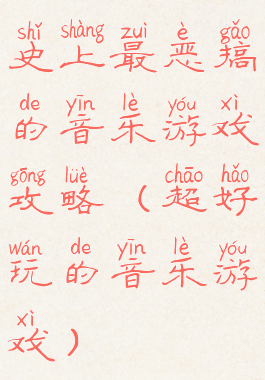 shǐ shàng zuì è gǎo
史上最恶搞
de yīn lè yóu xì
的音乐游戏
gōng lüè chāo hǎo
攻略（超好
wán de yīn lè yóu
玩的音乐游
xì
戏）